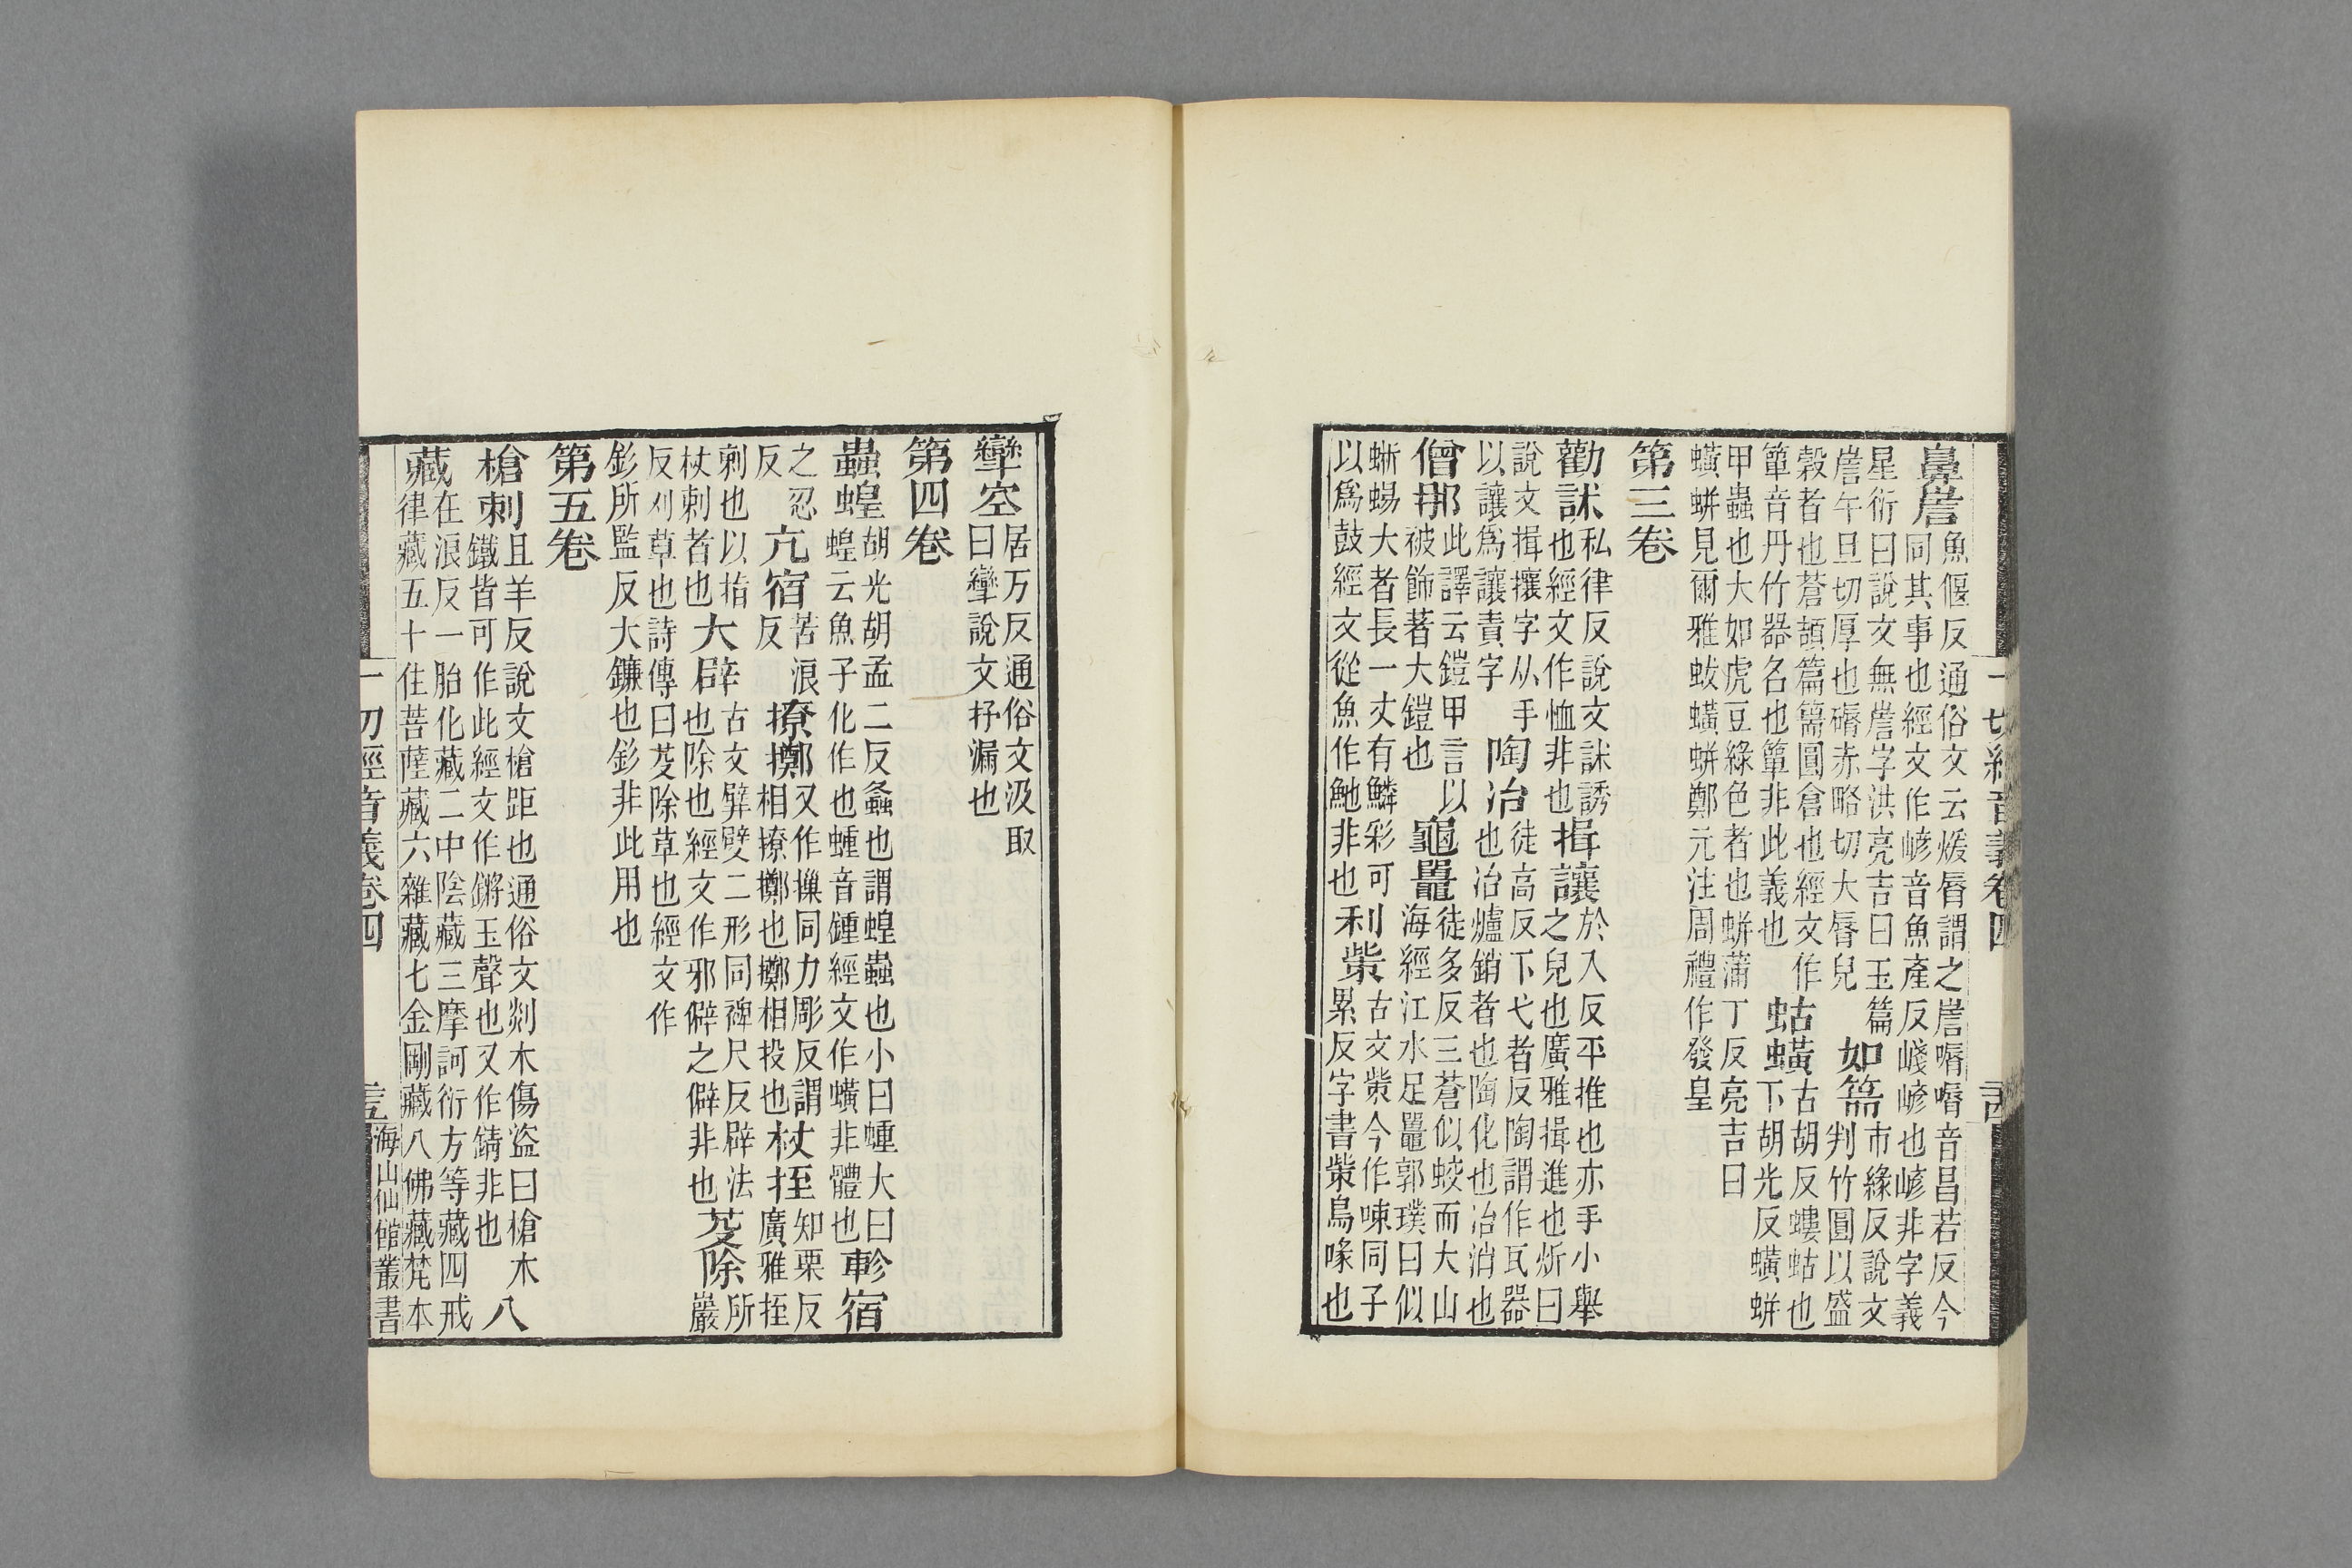 一切經音義卷四
鼻㫷魚偃反通俗文云煖脣謂之㫷磭磭音昌若反今同其事也經文作嵼音魚產反嶘嵼也嵼非字義
星衍曰說文無㫷字洪亮吉曰玉篇㫷午旦切厚也磭赤略切大脣皃如篅市緣反說文判竹圓以盛
穀者也蒼頡篇篅圓倉也經文作簞音丹竹器名也簞非此義也蛄蟥古胡反螻蛄也下胡光反蟥蛢
甲蟲也大如虎豆綠色者也蛢蒲丁反亮吉曰蟥蛢見爾雅蛂蟥蛢鄭元注周禮作發皇
第三卷
勸訹私律反說文訹誘也經文作恤非也揖讓於入反平推也亦手小舉之皃也廣雅揖進也炘曰
說文揖攘字从手以讓爲讓責字陶冶徒高反下弋者反陶謂作瓦器也冶爐銷者也陶化也冶消也
僧那此譯云鎧甲言以被飾著大鎧也龜鼉徒多反三蒼似蛟而大山海經江水足鼉郭璞曰似
蜥蜴大者長一丈有鱗彩可以爲鼓經文從魚作鮀非也利觜古文觜今作㖶同子累反字書觜鳥喙也
攣空居万反通俗文汲取曰攣說文抒漏也
第四卷
蟲蝗胡光胡孟二反螽也謂蝗蟲也小曰蝩大曰蝗云魚子化作也蝩音鍾經文作蟥非體也軫宿
之忍反亢宿苦浪反撩擲又作摷同力彫反謂相撩擲也擲相投也杖挃知栗反廣雅挃
刺也以指杖刺者也大辟古文二形同裨尺反辟法也除也經文作邪僻之僻非也芟除所巖
反刈草也詩傳曰芟除草也經文作釤所監反大鐮也釤非此用也
第五卷
槍刺且羊反說文槍距也通俗文剡木傷盜曰槍木鐵皆可作此經文作鏘玉聲也又作錆非也八
藏在浪反一胎化藏二中陰藏三摩訶衍方等藏四戒律藏五十住菩薩藏六雜藏七金剛藏八佛藏梵本
一切經音義卷四
海山仙館叢書